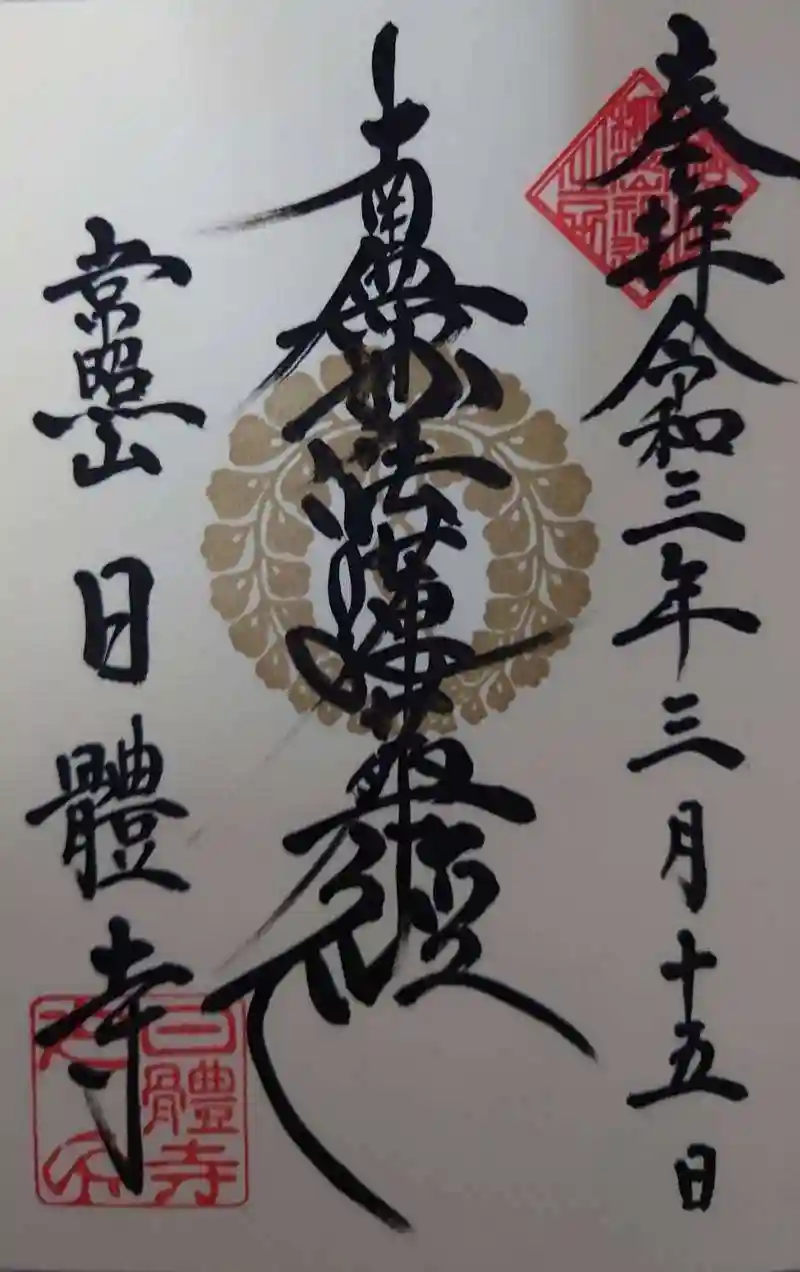 奉拝 令和三年三月十五日
南無妙法蓮華経
常照山 日體寺
日體寺